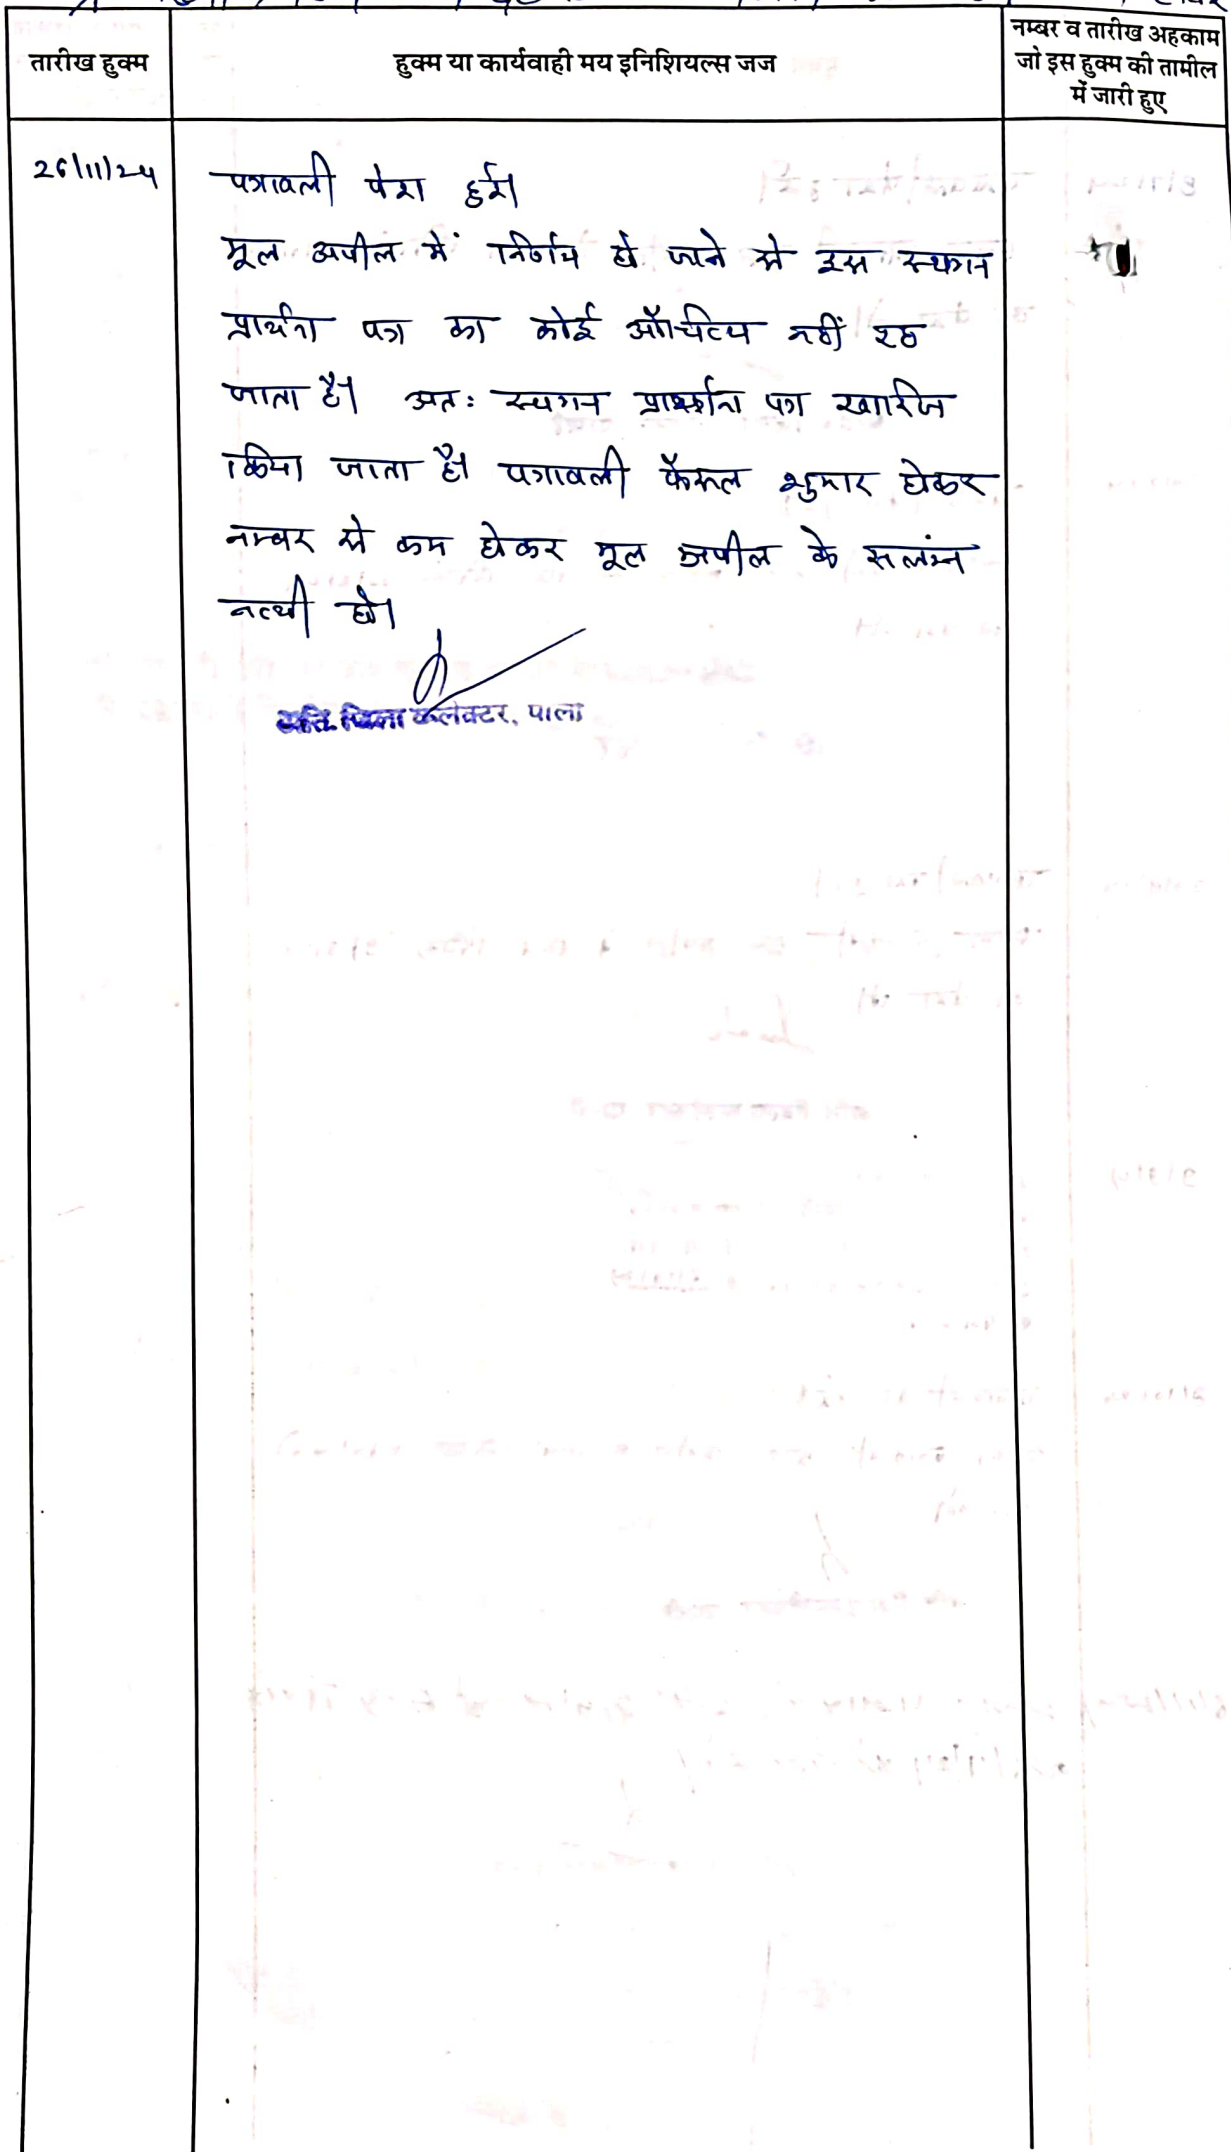 तारीख हुक्म
हुक्म या कार्यवाही मय इनिशियल्स जज
नम्बर व तारीख अहकाम
जो इस हुक्म की तामील
में जारी हुए
26/11/24
पत्रावली पेश हुई।
मूल अपील में निर्णय हो जाने से इस स्थगन
प्रार्थना पत्र का कोई औचित्य नहीं रह
जाता है। अतः स्थगन प्रार्थना पत्र खारिज
किया जाता है। पत्रावली फैसल शुमार होकर
नम्बर से कम होकर मूल अपील के सलंग्न
नत्थी हो।
अति. जिला कलेक्टर, पाली